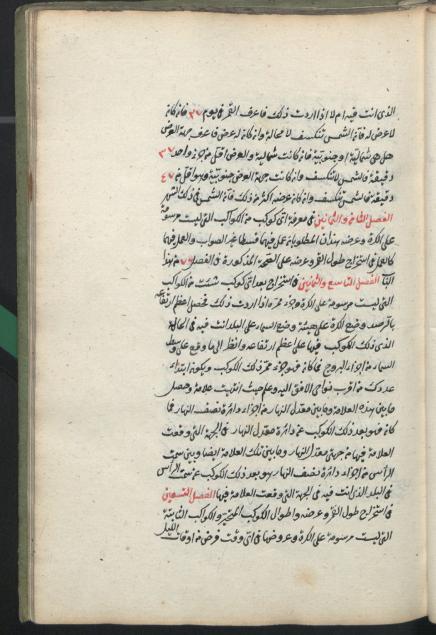 الذى انت فيه ام لا اذا اردت ذلك فاعرف القمر فى يوم ٣٧ فان كان
لا عرض له فان الشمس تنكسف لا محالة وان كان له عرض فاعرف جهة العرض
هل هى شمالية او جنوبية فان كانت شمالية والعرض اقل من جزء واحد ٣٧
دقيقة فالشمس لا تنكسف وان كانت جهة العرض جنوبية وهو اقل من ٤٧
دقيقة فالشمس تنكسف وان كان عرضه اكثر من ذلك فان الشمس فى ذلك الشهر
الفصل الثامن والثمانين فى معرفة اى كوكب من الكواكب التى ليست مرسومة
على الكرة وعرضه هذان المطلوبان عمل فيهما قسطا غير الصواب والعمل فيهما
كالعمل فى استخراج طول القمر وعرضه على الصحة المذكورة فى الفصل من هذا
الفصل التاسع والثمانين فى استخراج بعد اى كوكب شئت من الكواكب
التى ليست مرسومة على الكرة وجزء ممره اذا اردت ذلك فحصل اعظم ارتفاعه
بالرصد وضع الكرة على هيئة وضع السماء على البلد انت فيه فى الحالة
الذى ذلك الكوكب فيها على اعظم ارتفاعه وانظر الى ما وقع على وسط
السماء من اجزاء البروج فما كان فهو جزء ممر ذلك الكوكب ويكون ابتداء
عددك من اقرب نواحى الافق اليه وعلم حيث انتهيت علامة وحصل
ما بين هذه العلامة وما بين معدل النهار من اجزاء دائرة نصف النهار فما
كان فهو بعد ذلك الكوكب عن دائرة معدل النهار فى الجهة التى وقعت
العلامة فيها من جهتى معدل النهار وما بين تلك العلامة ايضا وبين سمت
الرأس من اجزاء دائرة نصف النهار هو بعد ذلك الكوكب عن سمت الرأس
فى البلد الذى انت فيه فى الجهة التى وقعت العلامة فيها الفصل التسعين
فى استخراج طول القمر وعرضه واطوال الكواكب المتحيرة والكواكب الثابتة
التى ليست مرسومة على الكرة وعروضها فى اى وقت فرض من اوقات الليل